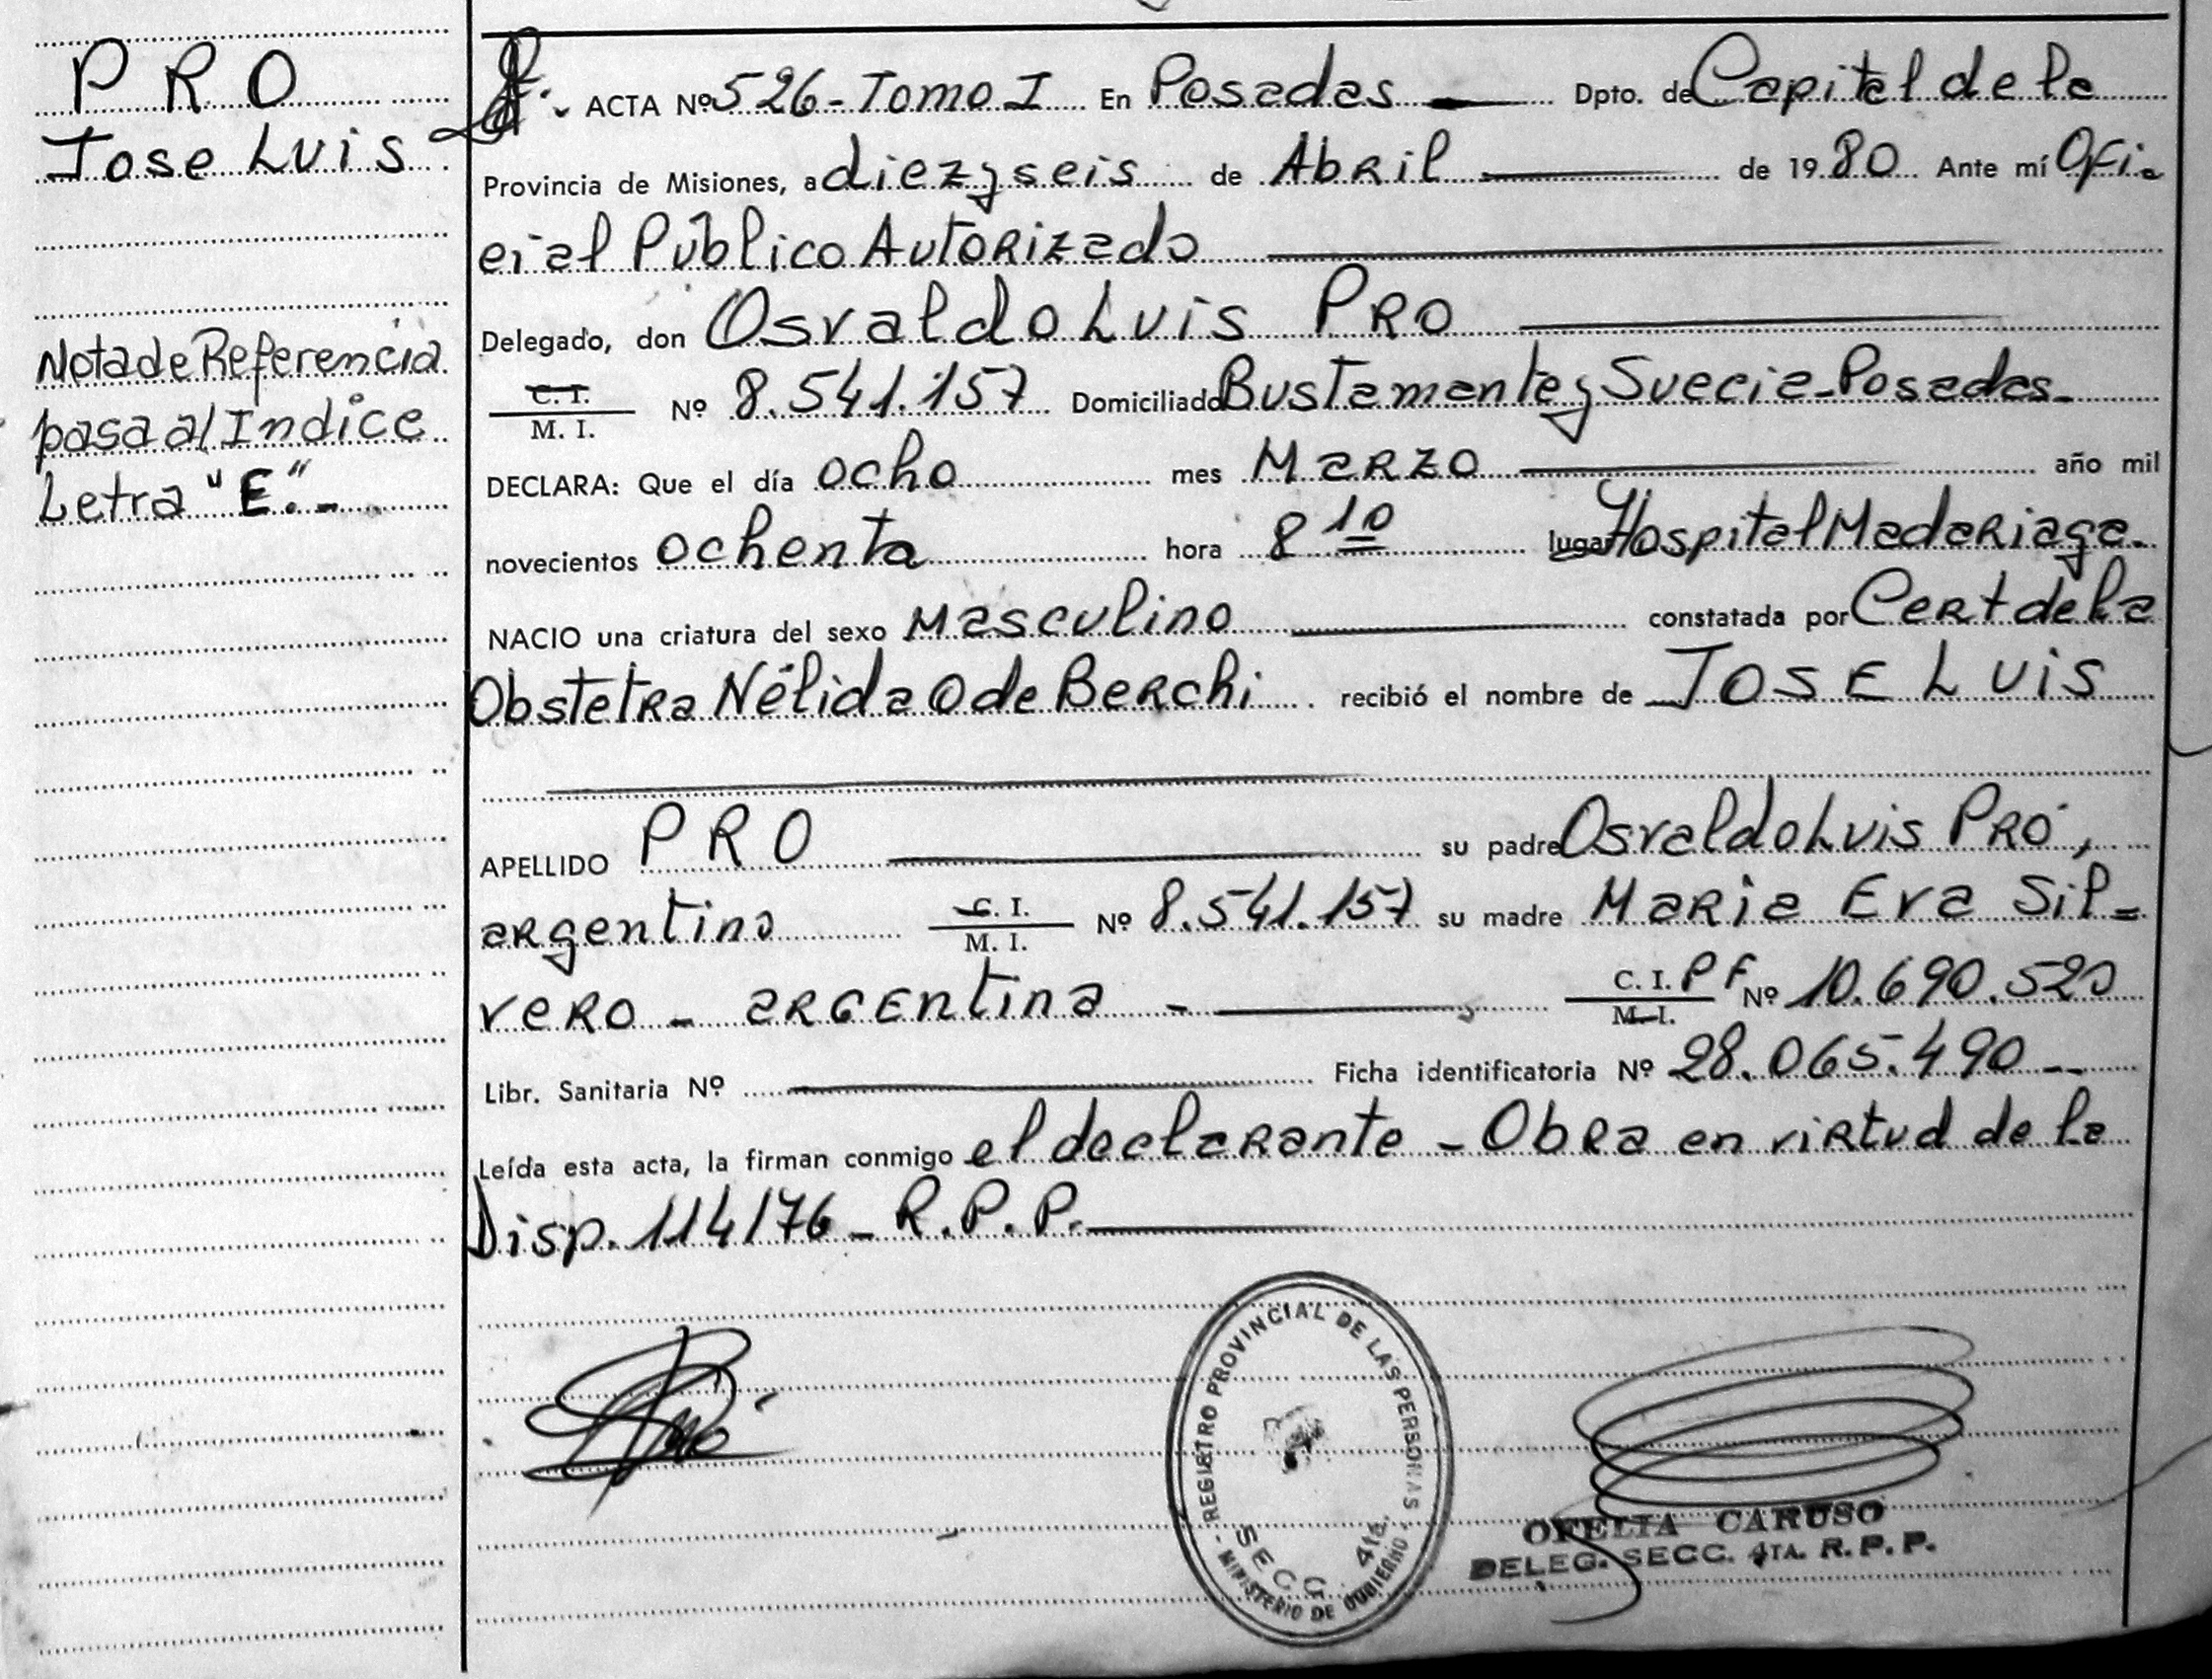 PRO
Jose Luis
Nota de Referencia
pasa al Indice
Letra "E".-
ACTA Nº 526-Tomo I En Posadas Dpto. de Capital de la
Provincia de Misiones, a diez y seis de Abril de 1980 Ante mí Ofi-
cial Público Autorizado
Delegado, don Osvaldo Luis PRO
C. I.
M. I. Nº 8.541.157 Domiciliado Bustamante y Suecia-Posadas-
DECLARA: Que el día ocho mes Marzo año mil
novecientos ochenta hora 8 10 lugar Hospital Madariaga.
NACIO una criatura del sexo Masculino constatada por Cert de la
Obstetra Nélida O de Berchi recibió el nombre de JOSE LUIS
APELLIDO PRO su padre Osvaldo Luis PRó,
argentino C. I.
M. I. Nº 8.541.157 su madre Maria Eva Sil-
vero - argentina - C. I. P F
M. I. Nº 10.690.520
Libr. Sanitaria Nº Ficha identificatoria Nº 28.065.490--
Leída esta acta, la firman conmigo el declarante - Obra en virtud de la
Disp. 114/76 - R.P.P.
REGISTRO PROVINCIAL DE LAS PERSONAS
SECC. 4ta.
- MINISTERIO DE GOBIERNO -
OFELIA CARUSO
DELEG. SECC. 4TA. R. P. P.